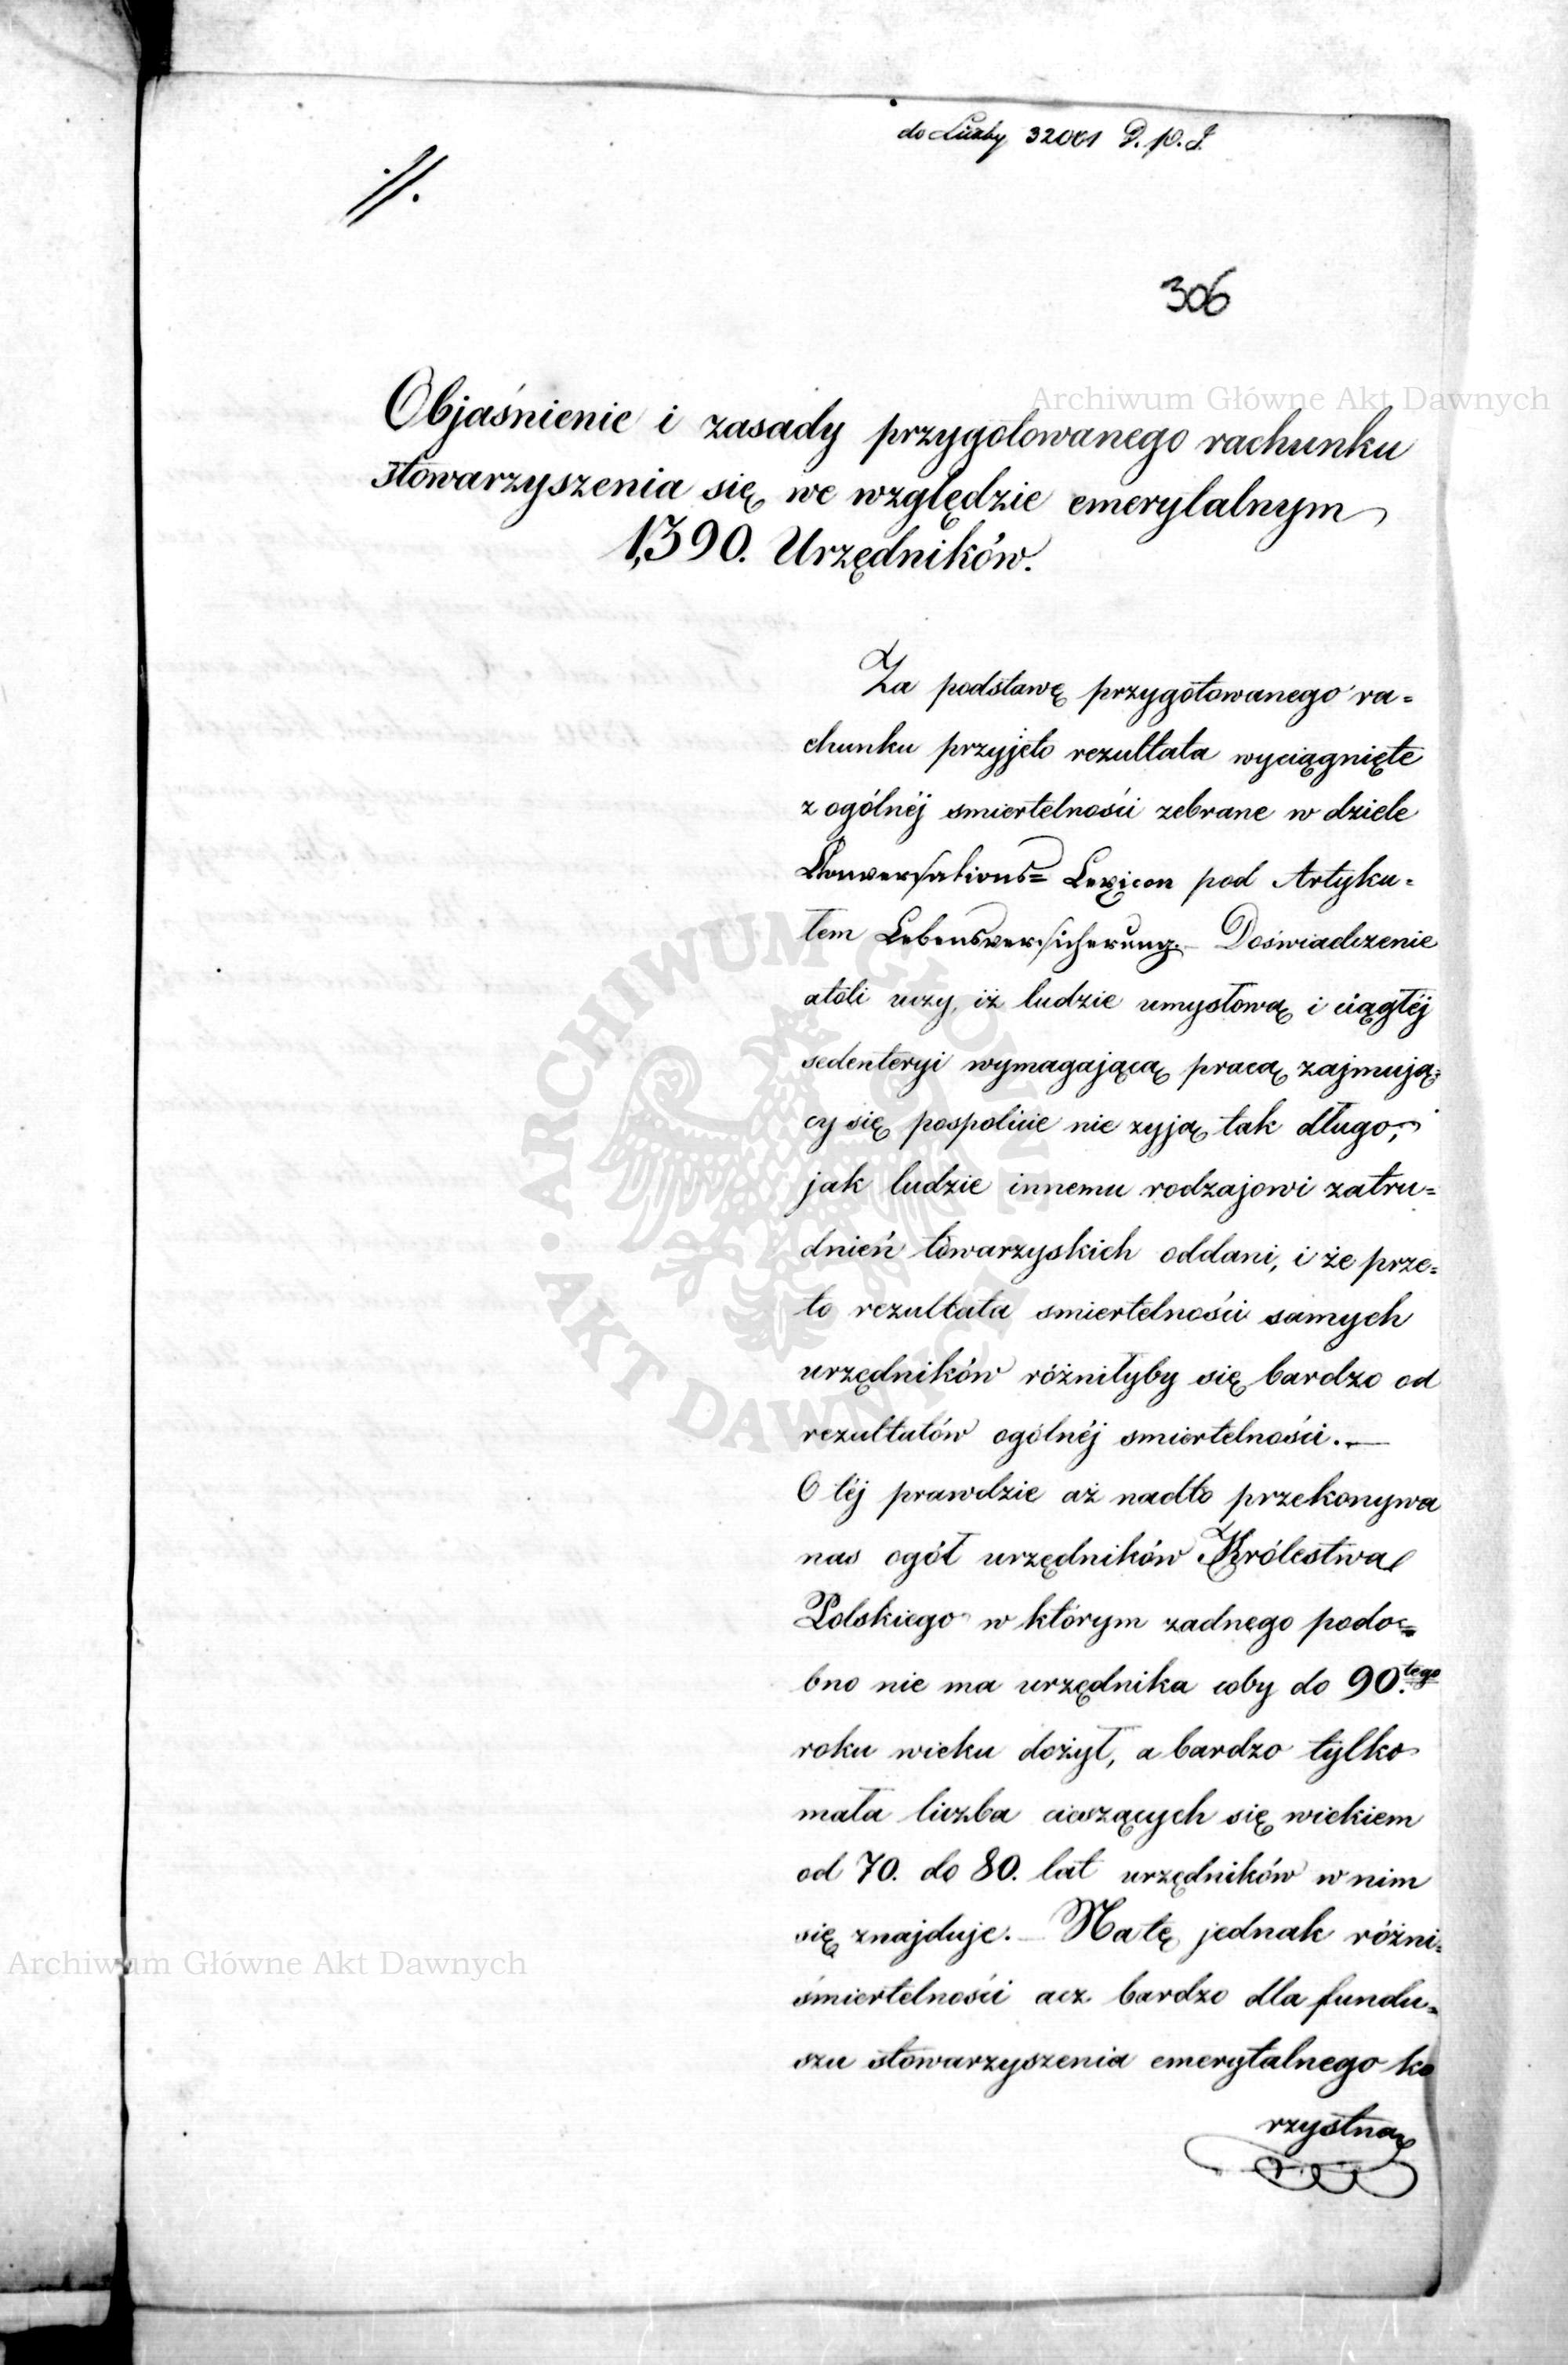 do Liczby 32001 D. p. J.
//.
306
Archiwum Główne Akt Dawnych
Objaśnienie i zasady przygotowanego rachunku
stowarzyszenia się we względzie emerytalnym
1,390. Urzędników.
Za podstawę przygotowanego ra=
chunku przyjęto rezultata wyciągnięte
z ogólnéj smiertelności zebrane w dziele
Conversations= Lexicon pod Artyku=
łem Lebensversicherung. – Doświadczenie
atoli uczy, iż ludzie umysłową i ciągłéj
sedenteryi wymagającą pracą zajmują=
cy się pospolicie nie zyją tak długo,
jak ludzie innemu rodzajowi zatru=
dnień towarzyskich oddani, i że prze=
to rezultata smiertelności samych
urzędników różniłyby się bardzo od
rezultatów ogólnéj smiertelności. —
O téj prawdzie aż nadto przekonywa
nas ogół urzędników Królestwa
Polskiego w którym zadnego podo=
bno nie ma urzędnika coby do 90.tego
roku wieku dożył, a bardzo tylko
mała liczba cieszących się wiekiem
od 70. do 80. lat urzędników w nim
się znajduje. – Na tę jednak różni=
śmiertelności acz bardzo dla fundu=
szu stowarzyszenia emerytalnego ko
rzystną
Archiwum Główne Akt Dawnych
ARCHIWUM GŁÓWNE · AKT DAWNYCH ·